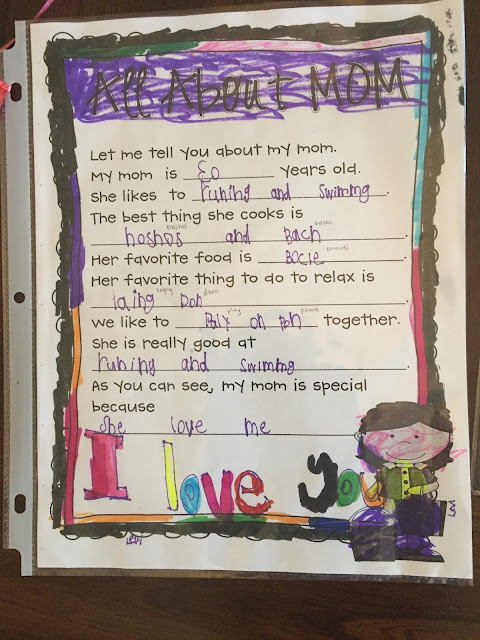 All About MOM
Let me tell you about my mom.
My mom is 30 years old.
She likes to runing and swimmg.
The best thing she cooks is
hoshos and Bach.
Her favorite food is Bocie.
Her favorite thing to do to relax is
laing Don.
We like to Play on Poh together.
She is really good at
runing and swimmg.
As you can see, my mom is special
because
she love me
I love you